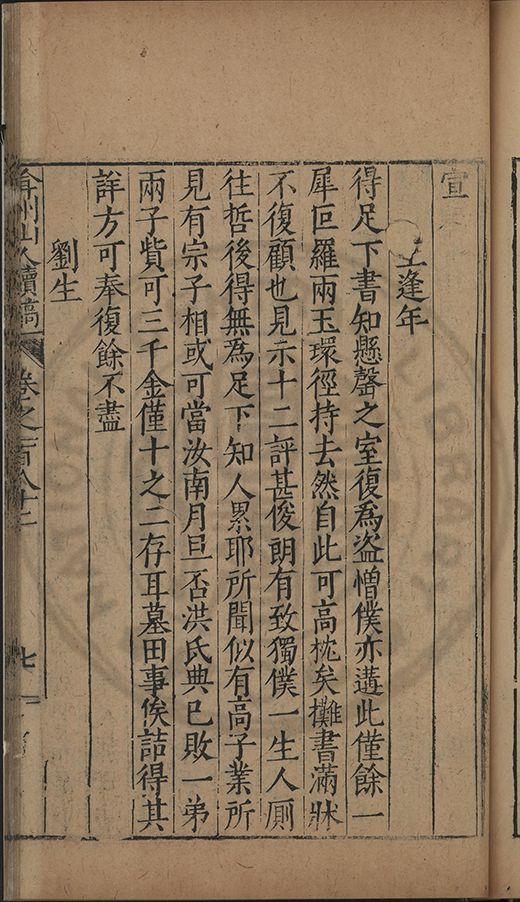 宣
王逢年
得足下書知懸罄之室復爲盗憎僕亦遘此僅餘一
犀叵羅兩玉環徑持去然自此可高枕矣攤書滿牀
不復顧也見示十二評甚俊朗有致獨僕一生人厠
往哲後得無爲足下知人累耶所聞似有高子業所
見有宗子相或可當汝南月旦否洪氏典已敗一弟
兩子貲可三千金僅十之二存耳墓田事俟詰得其
詳方可奉復餘不盡
劉生
弇州山人續稿 卷之一百八十二 七